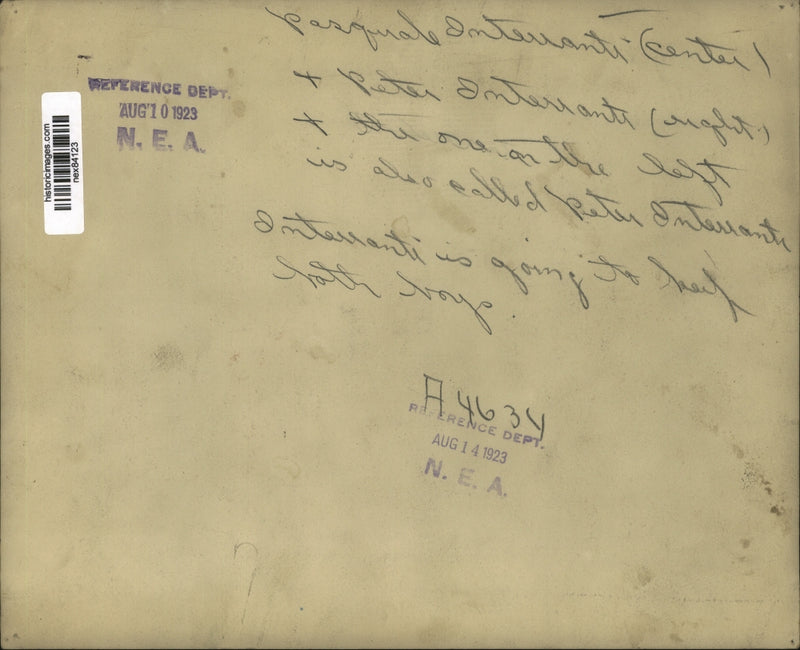 Pasquale Interranti (center)
+ Peter Interranti (right)
+ the one on the left
is also called Peter Interranti
Interranti is going to keep
both boys.
REFERENCE DEPT.
AUG 10 1923
N. E. A.
historicimages.com
nex84123
A 4634
REFERENCE DEPT.
AUG 14 1923
N. E. A.